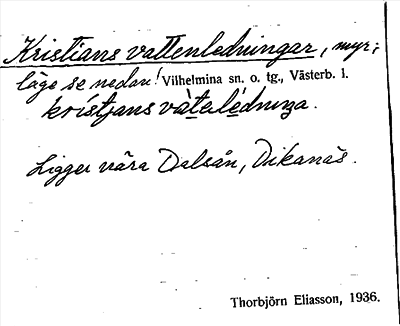 Kristians vattenledningar, myr;
läge se nedan! Vilhelmina sn. o. tg., Västerb. l.
kristjans vàtalédniŋa.
Ligger våra Dalsån, Dikanäs.
Thorbjörn Eliasson, 1936.